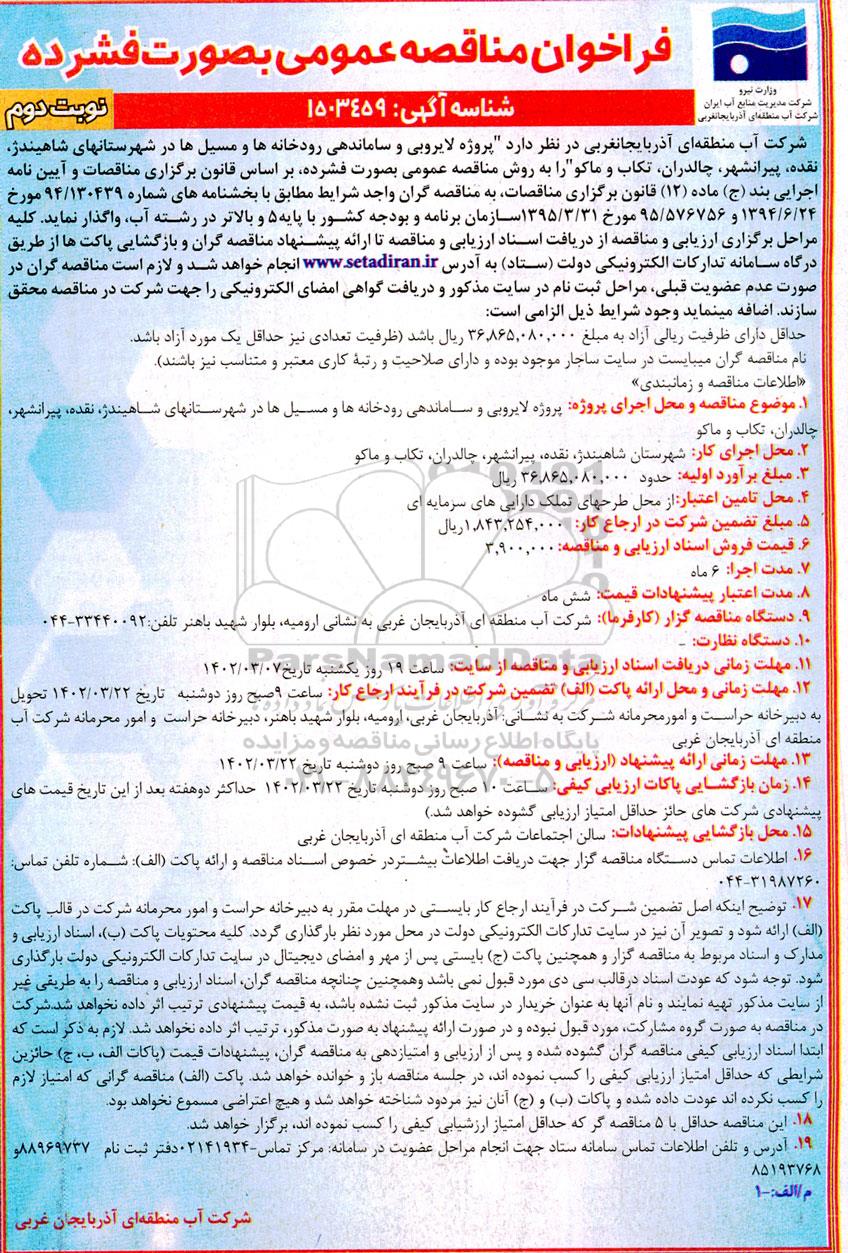 فراخوان مناقصه عمومی بصورت فشرده
وزارت نیرو
شرکت مدیریت منابع آب ایران
شرکت آب منطقه‌ای آذربایجانغربی
شناسه آگهی: ۱۵۰۳۴۵۹
نوبت دوم
شرکت آب منطقه‌ای آذربایجانغربی در نظر دارد "پروژه لایروبی و ساماندهی رودخانه ها و مسیل ها در شهرستانهای شاهیندژ،
نقده، پیرانشهر، چالدران، تکاب و ماکو"را به روش مناقصه عمومی بصورت فشرده، بر اساس قانون برگزاری مناقصات و آیین نامه
اجرایی بند (ج) ماده (۱۲) قانون برگزاری مناقصات، به مناقصه گران واجد شرایط مطابق با بخشنامه های شماره ۹۴/۱۳۰۴۳۹ مورخ
۱۳۹۴/۶/۲۴ و ۹۵/۵۷۶۷۵۶ مورخ ۱۳۹۵/۳/۳۱سازمان برنامه و بودجه کشور با پایه۵ و بالاتر در رشته آب، واگذار نماید. کلیه
مراحل برگزاری ارزیابی و مناقصه از دریافت اسناد ارزیابی و مناقصه تا ارائه پیشنهاد مناقصه گران و بازگشایی پاکت ها از طریق
درگاه سامانه تدارکات الکترونیکی دولت (ستاد) به آدرس www.setadiran.ir انجام خواهد شد و لازم است مناقصه گران در
صورت عدم عضویت قبلی، مراحل ثبت نام در سایت مذکور و دریافت گواهی امضای الکترونیکی را جهت شرکت در مناقصه محقق
سازند. اضافه مینماید وجود شرایط ذیل الزامی است:
حداقل دارای ظرفیت ریالی آزاد به مبلغ ۳۶,۸۶۵,۰۸۰,۰۰۰ ریال باشد (ظرفیت تعدادی نیز حداقل یک مورد آزاد باشد.
نام مناقصه گران میبایست در سایت ساجار موجود بوده و دارای صلاحیت و رتبهٔ کاری معتبر و متناسب نیز باشند).
«اطلاعات مناقصه و زمانبندی»
۱. موضوع مناقصه و محل اجرای پروژه: پروژه لایروبی و ساماندهی رودخانه ها و مسیل ها در شهرستانهای شاهیندژ، نقده، پیرانشهر،
چالدران، تکاب و ماکو
۲. محل اجرای کار: شهرستان شاهیندژ، نقده، پیرانشهر، چالدران، تکاب و ماکو
۳. مبلغ برآورد اولیه: حدود ۳۶,۸۶۵,۰۸۰,۰۰۰ ریال
۴. محل تامین اعتبار:از محل طرحهای تملک دارایی های سرمایه ای
۵. مبلغ تضمین شرکت در ارجاع کار: ۱,۸۴۳,۲۵۴,۰۰۰ریال
۶. قیمت فروش اسناد ارزیابی و مناقصه:۳,۹۰۰,۰۰۰
۷. مدت اجرا: ۶ ماه
۸. مدت اعتبار پیشنهادات قیمت: شش ماه
۹. دستگاه مناقصه گزار (کارفرما): شرکت آب منطقه ای آذربایجان غربی به نشانی ارومیه، بلوار شهید باهنر تلفن:۳۳۴۴۰۰۹۲-۰۴۴
۱۰. دستگاه نظارت: -
۱۱. مهلت زمانی دریافت اسناد ارزیابی و مناقصه از سایت: ساعت ۱۹ روز یکشنبه تاریخ۱۴۰۲/۰۳/۰۷
۱۲. مهلت زمانی و محل ارائه پاکت (الف) تضمین شرکت در فرآیند ارجاع کار: ساعت ۹صبح روز دوشنبه تاریخ ۱۴۰۲/۰۳/۲۲ تحویل
به دبیرخانه حراست و امورمحرمانه شرکت به نشانی: آذربایجان غربی، ارومیه، بلوار شهید باهنر، دبیرخانه حراست و امور محرمانه شرکت آب
منطقه ای آذربایجان غربی
۱۳. مهلت زمانی ارائه پیشنهاد (ارزیابی و مناقصه): ساعت ۹ صبح روز دوشنبه تاریخ ۱۴۰۲/۰۳/۲۲
۱۴. زمان بازگشایی پاکات ارزیابی کیفی: ساعت ۱۰ صبح روز دوشنبه تاریخ ۱۴۰۲/۰۳/۲۲ حداکثر دوهفته بعد از این تاریخ قیمت های
پیشنهادی شرکت های حائز حداقل امتیاز ارزیابی گشوده خواهد شد.)
۱۵. محل بازگشایی پیشنهادات: سالن اجتماعات شرکت آب منطقه ای آذربایجان غربی
۱۶. اطلاعات تماس دستگاه مناقصه گزار جهت دریافت اطلاعات بیشتردر خصوص اسناد مناقصه و ارائه پاکت (الف): شماره تلفن تماس:
۳۱۹۸۷۲۶۰-۰۴۴
۱۷. توضیح اینکه اصل تضمین شرکت در فرآیند ارجاع کار بایستی در مهلت مقرر به دبیرخانه حراست و امور محرمانه شرکت در قالب پاکت
(الف) ارائه شود و تصویر آن نیز در سایت تدارکات الکترونیکی دولت در محل مورد نظر بارگذاری گردد. کلیه محتویات پاکت (ب)، اسناد ارزیابی و
مدارک و اسناد مربوط به مناقصه گزار و همچنین پاکت (ج) بایستی پس از مهر و امضای دیجیتال در سایت تدارکات الکترونیکی دولت بارگذاری
شود. توجه شود که عودت اسناد درقالب سی دی مورد قبول نمی باشد وهمچنین چنانچه مناقصه گران، اسناد ارزیابی و مناقصه را به طریقی غیر
از سایت مذکور تهیه نمایند و نام آنها به عنوان خریدار در سایت مذکور ثبت نشده باشد، به قیمت پیشنهادی ترتیب اثر داده نخواهد شد.شرکت
در مناقصه به صورت گروه مشارکت، مورد قبول نبوده و در صورت ارائه پیشنهاد به صورت مذکور، ترتیب اثر داده نخواهد شد. لازم به ذکر است که
ابتدا اسناد ارزیابی کیفی مناقصه گران گشوده شده و پس از ارزیابی و امتیازدهی به مناقصه گران، پیشنهادات قیمت (پاکات الف، ب، ج) حائزین
شرایطی که حداقل امتیاز ارزیابی کیفی را کسب نموده اند، در جلسه مناقصه باز و خوانده خواهد شد. پاکت (الف) مناقصه گرانی که امتیاز لازم
را کسب نکرده اند عودت داده شده و پاکات (ب) و (ج) آنان نیز مردود شناخته خواهد شد و هیچ اعتراضی مسموع نخواهد بود.
۱۸. این مناقصه حداقل با ۵ مناقصه گر که حداقل امتیاز ارزشیابی کیفی را کسب نموده اند، برگزار خواهد شد.
۱۹. آدرس و تلفن اطلاعات تماس سامانه ستاد جهت انجام مراحل عضویت در سامانه: مرکز تماس-۰۲۱۴۱۹۳۴دفتر ثبت نام ۸۸۹۶۹۷۳۷و
۸۵۱۹۳۷۶۸
م/الف:-۱
شرکت آب منطقه‌ای آذربایجان غربی
ParsNamadData
پایگاه اطلاع رسانی مناقصه و مزایده
۰۲۱-۸۸۳۴۹۶۷۰-۵